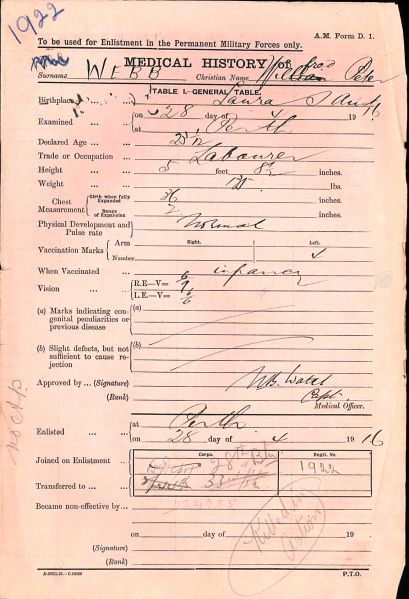 1922
A.M. Form D. 1.
To be used for Enlistment in the Permanent Military Forces only.
MEDICAL HISTORY of
Surname WEBB Christian Name Wilfred Peter
TABLE I.—GENERAL TABLE.
Birthplace ... ... Laura S Aust
Examined ... ... on 28 day of 4 1916
at Perth
Declared Age ... 23
Trade or Occupation ... Labourer
Height ... ... 5 feet 8½ inches.
Weight ... ... lbs.
Chest Measurement Girth when fully Expanded 36 inches.
Range of Expansion 2 inches.
Physical Development and Pulse rate Normal
Right. Left.
Vaccination Marks Arm
Number 4
When Vaccinated ... infancy
Vision ... ... R.E—V= 6
L.E.—V= 6
(a) Marks indicating congenital peculiarities or previous disease (a)
(b) Slight defects, but not sufficient to cause rejection (b)
Approved by — (Signature)
(Rank) Capt.
Medical Officer.
Enlisted ... ... at Perth
on 28 day of 4 1916
Corps. Regtl. No.
Joined on Enlistment ... Depot 28th Btn 1922
Transferred to ...
Became non-effective by...
on day of 19
(Signature)
(Rank)
Killed in Action
P.T.O.